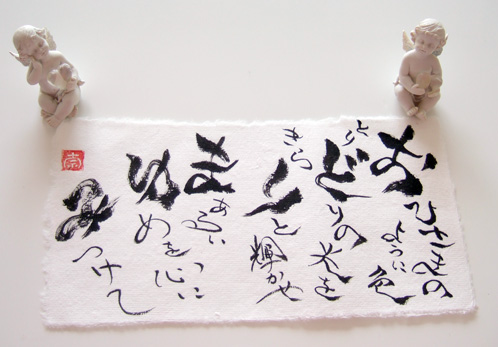 おひさまの
ように色
とりどりの光を
きらりと輝かせ
まあるい
ゆめを心に
みつけて